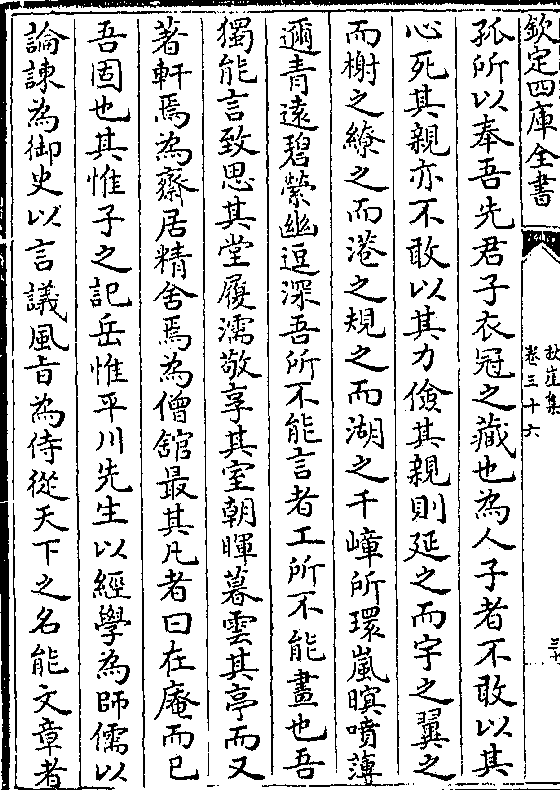 欽定四庫全書
卷三十六
孤所以奉吾先君子衣冠之藏也為人子者不敢以其
心死其親亦不敢以其力儉其親則延之而宇之翼之
而榭之繚之而港之規之而湖之千嶂所環嵐暝噴薄
邇青遠碧縈幽逗深吾所不能言者工所不能畫也吾
獨能言致思其堂履濡敬享其室朝暉暮雲其亭而又
著軒焉為齋居精舍焉為僧舘最其凡者曰在庵而已
吾固也其惟子之記岳惟平川先生以經學為師儒以
論諫為御史以言議風旨為侍從天下之名能文章者